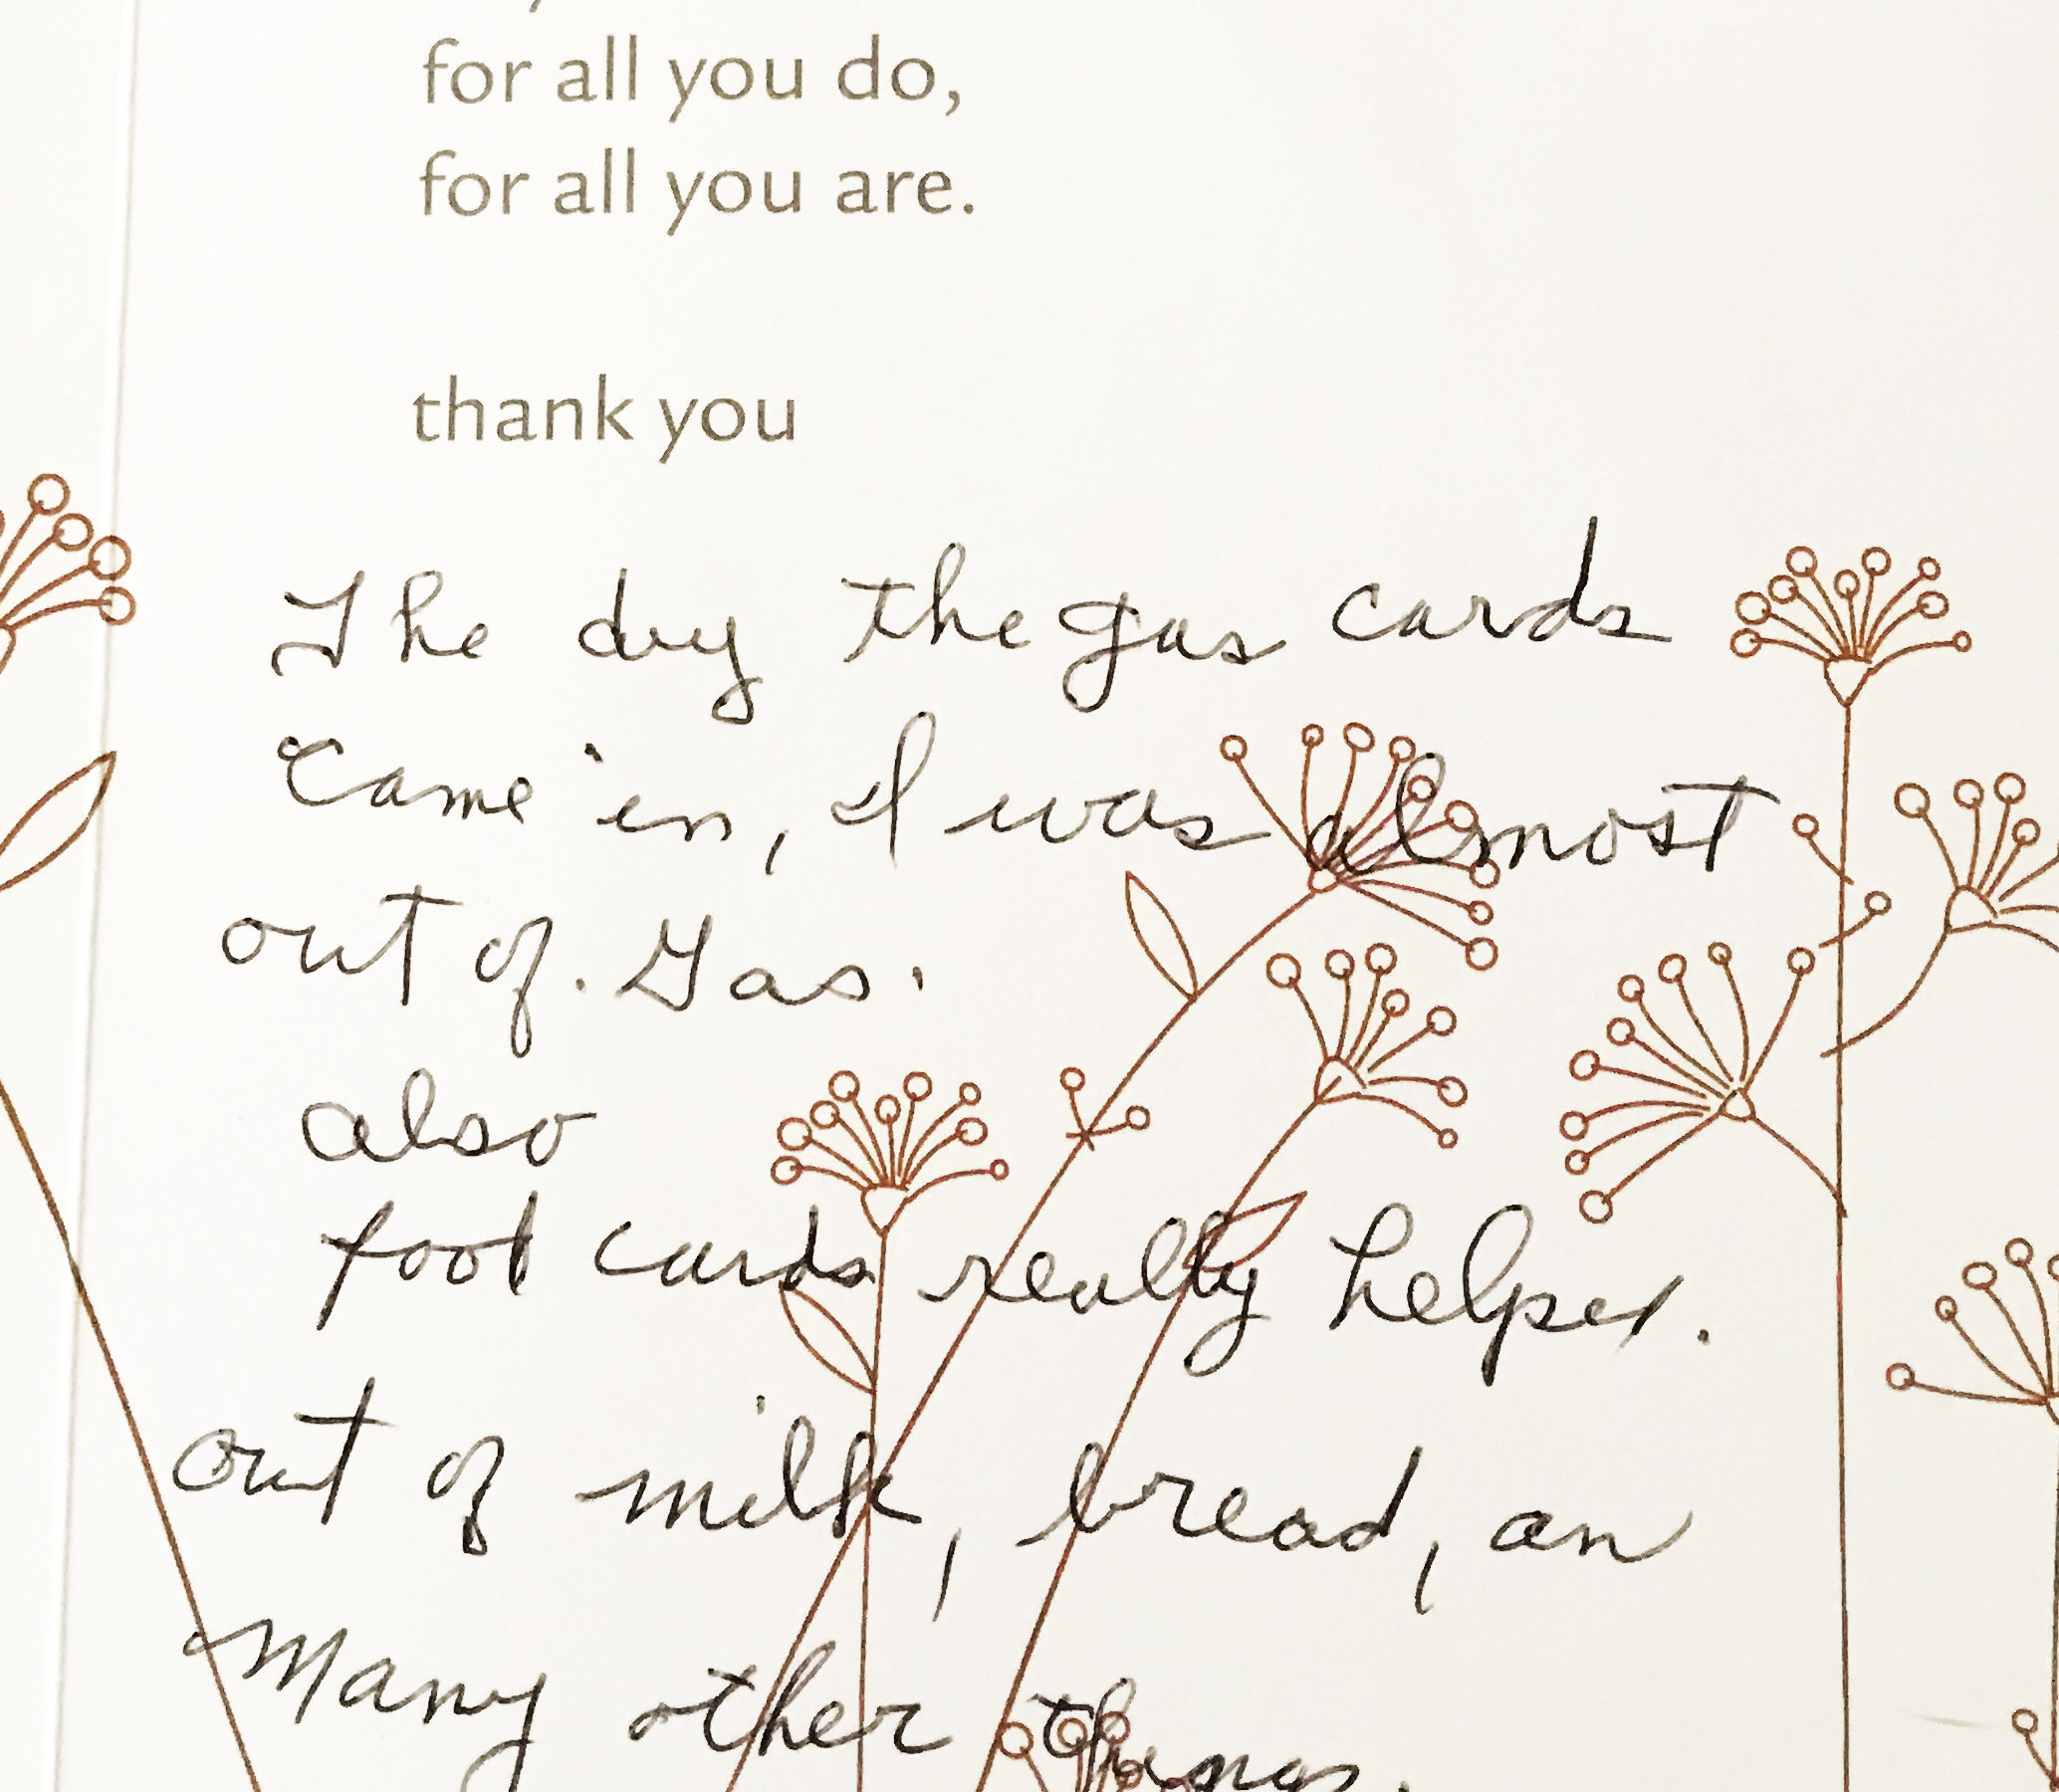 for all you do,
for all you are.
thank you
The day the gas cards
came in, I was almost
out of. Gas.
also
food cards really helped.
out of milk, bread, an
many other things.